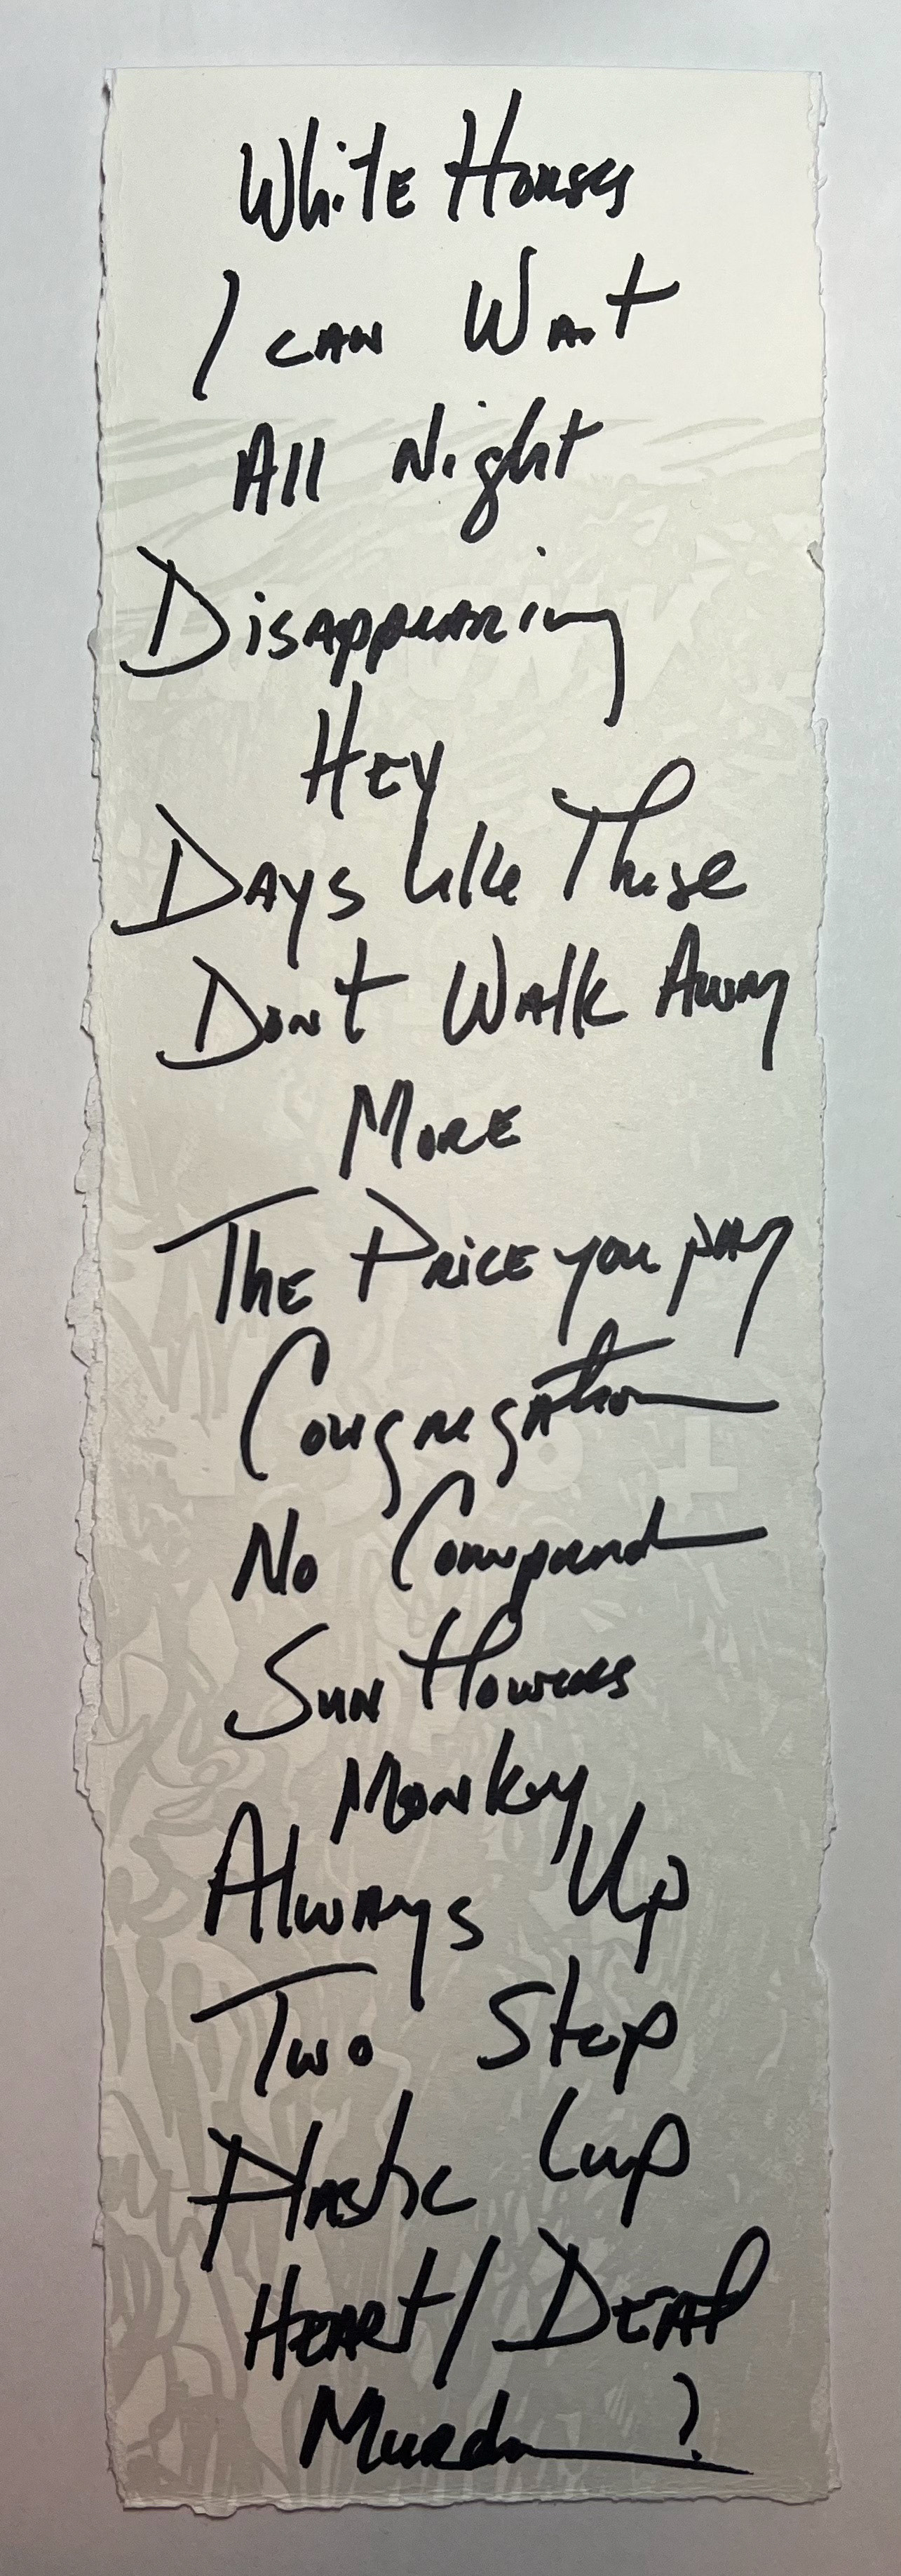 White Horses
I can Wait
All Night
Disappearing
Hey
Days Like These
Dont Walk Away
More
The Price you pay
Congregation
No Comprend
Sun flowers
Monkey
Always Up
Two Step
Plastic Cup
Heart/Deaf
Murder ?